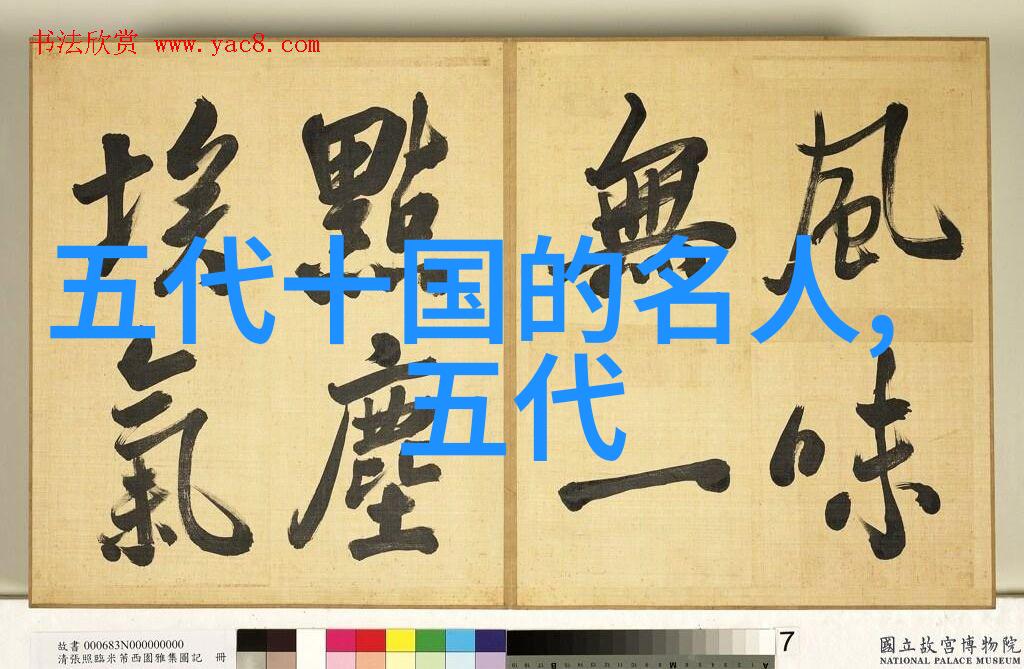 书法欣赏 www.yac8.com
風味
無一
點塵
埃氣
五代十国的名人,
五代
故書 000683N000000000
清張照臨米芾西園雅集圖記 冊
7
國立故宮博物院
NATIONAL PALACE MUSEUM